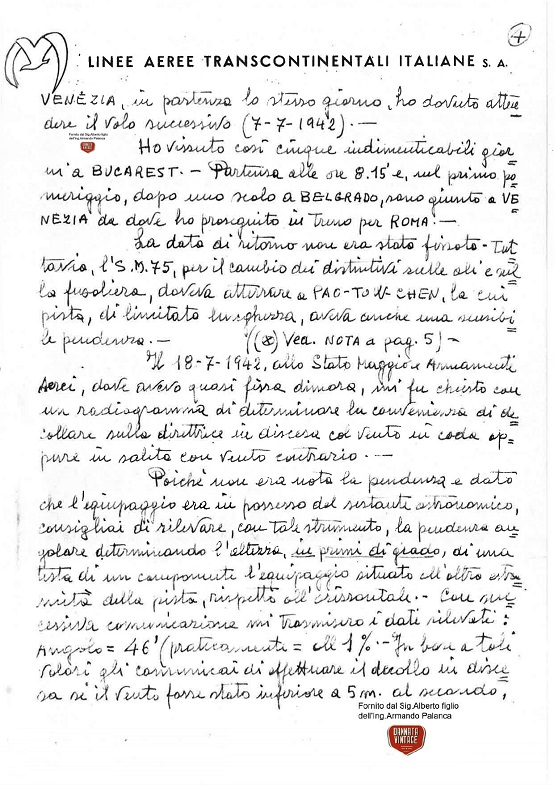 4
LINEE AEREE TRANSCONTINENTALI ITALIANE S. A.
VENEZIA, in partenza lo stesso giorno, ho dovuto atten=
dere il volo successivo (7-7-1942).—
Fornito dal Sig.Alberto figlio
dell'Ing.Armando Palanca
DANNATA VINTAGE
Ho vissuto così cinque indimenticabili gior=
ni a BUCAREST.— Partenza alle ore 8.15' e, nel primo po=
meriggio, dopo uno scalo a BELGRADO, sono giunto a VE=
NEZIA da dove ho proseguito in treno per ROMA.—
La data di ritorno non era stata fissata - Tut=
tavia, l'S.M.75, per il cambio dei distintivi sulle ali e sul=
la fusoliera, doveva atterrare a PAO-TOW-CHEN, la cui
pista, di limitata lunghezza, aveva anche una sensibi=
le pendenza.— ((*) Ved. NOTA a pag. 5)—
Il 18-7-1942, allo Stato Maggiore Armamenti
Aerei, dove avevo quasi fissa dimora, mi fu chiesto con
un radiogramma di determinare la convenienza di de=
collare sulla direttrice in discesa col vento in coda op=
pure in salita con vento contrario.—
Poichè non era nota la pendenza e dato
che l'equipaggio era in possesso del sestante astronomico,
consigliai di rilevare, con tale strumento, la pendenza an=
golare determinando l'altezza, in primi di grado, di una
testa di un componente l'equipaggio situato all'altra estre=
mità della pista, rispetto all'orizzontale.- Con suc=
cessiva comunicazione mi trasmisero i dati rilevati:
Angolo = 46' (praticamente = all' 1 %.- In base a tali
valori gli comunicai di effettuare il decollo in disce=
sa se il vento fosse stato inferiore a 5 m. al secondo,
Fornito dal Sig.Alberto figlio
dell'Ing.Armando Palanca
DANNATA VINTAGE